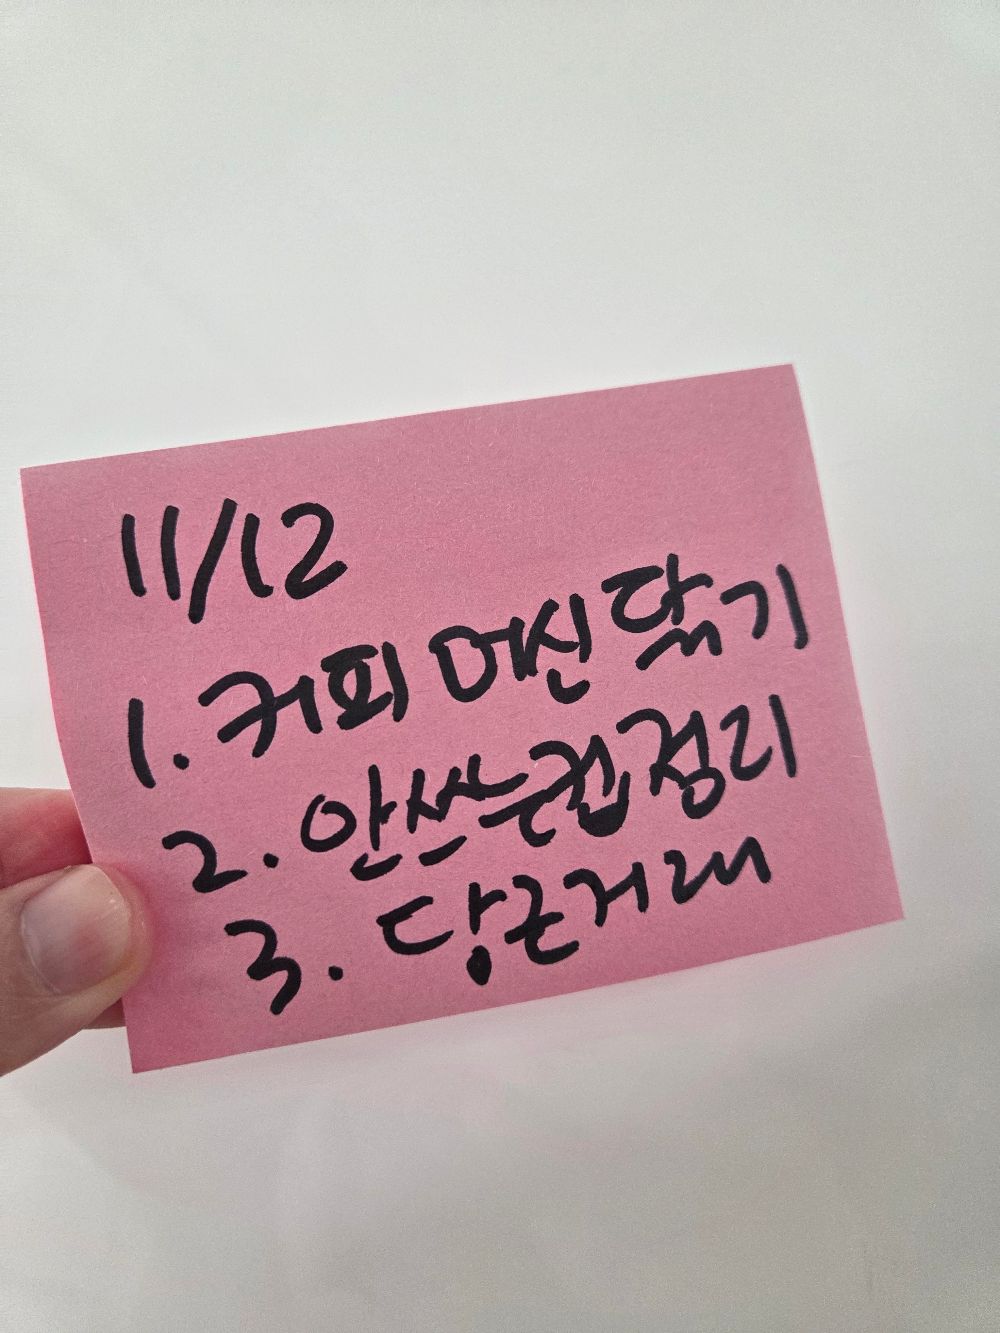 11/12
1. 커피 머신 닦기
2. 안쓰는컵 정리
3. 당근거래